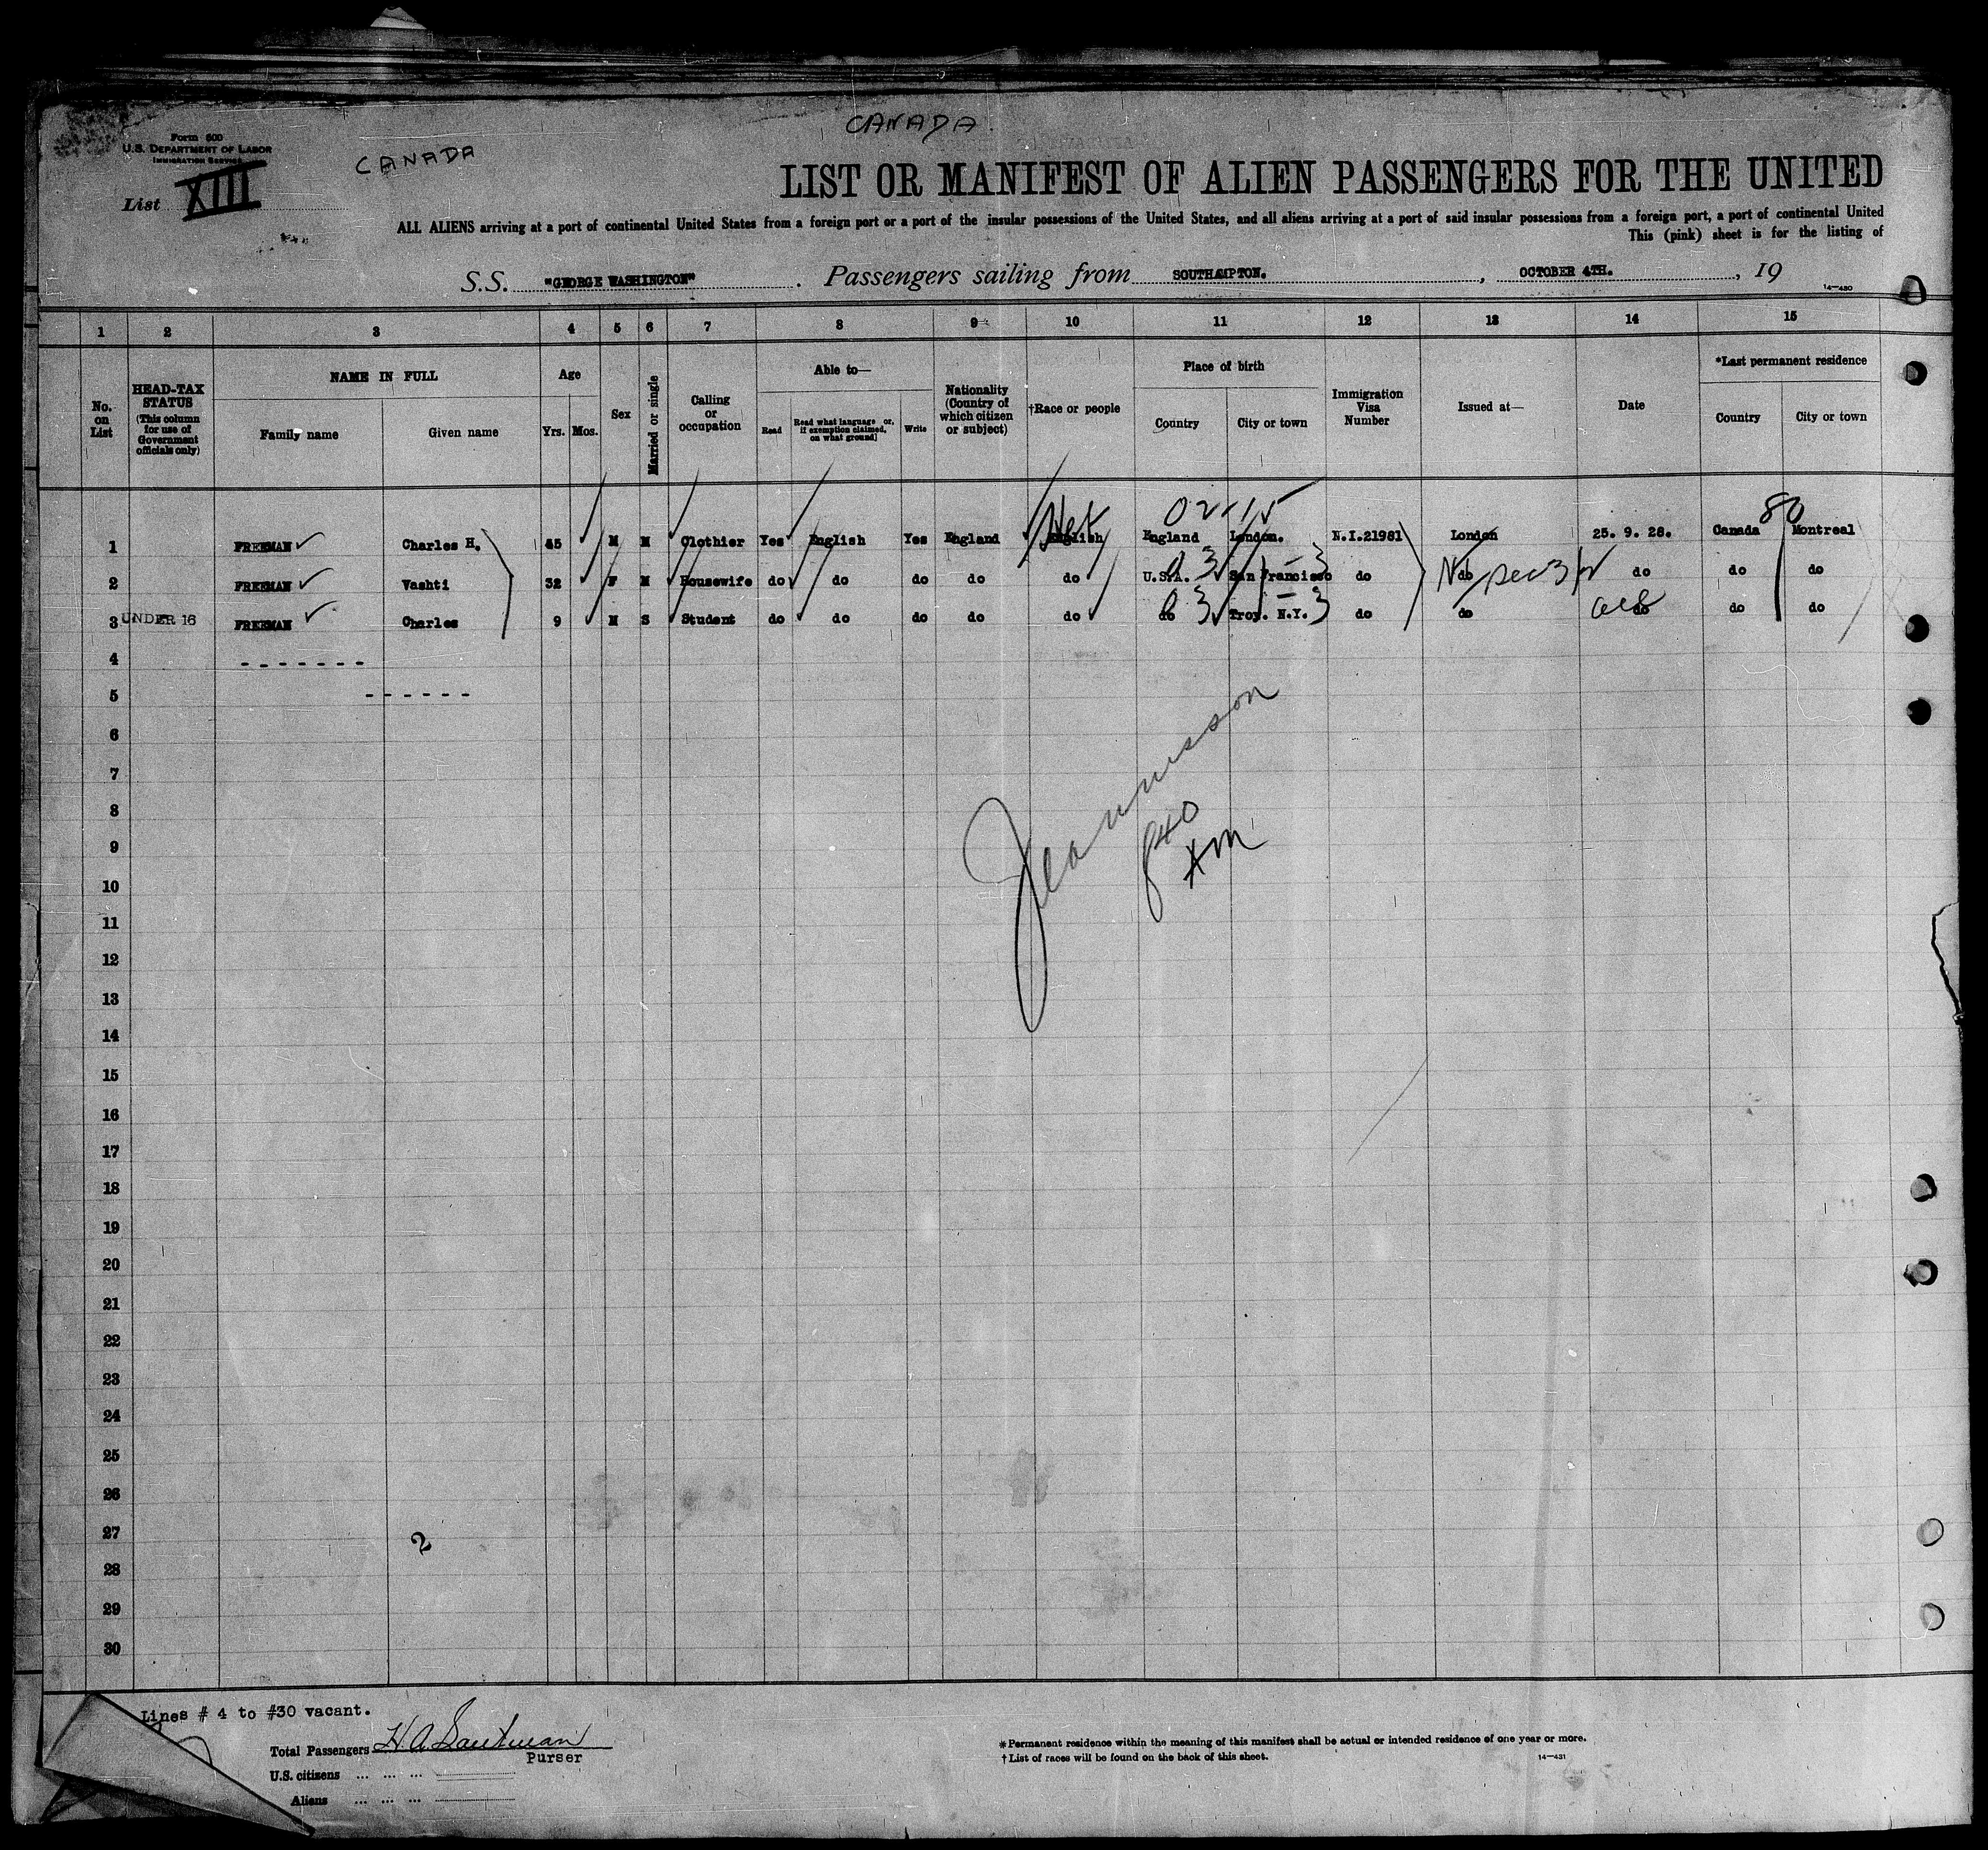 CANADA
Form 600
U.S. DEPARTMENT OF LABOR
IMMIGRATION SERVICE
CANADA
List XIII
LIST OR MANIFEST OF ALIEN PASSENGERS FOR THE UNITED
ALL ALIENS arriving at a port of continental United States from a foreign port or a port of the insular possessions of the United States, and all aliens arriving at a port of said insular possessions from a foreign port, a port of continental United
This (pink) sheet is for the listing of
S.S. "GEORGE WASHINGTON". Passengers sailing from SOUTHAMPTON., OCTOBER 4TH., 19
14—430
1 2 3 4 5 6 7 8 9 10 11 12 13 14 15
No. on List
HEAD-TAX STATUS
(This column for use of Government officials only)
NAME IN FULL
Family name Given name
Age
Yrs. Mos.
Sex
Married or single
Calling or occupation
Able to—
Read Read what language [or, if exemption claimed, on what ground] Write
Nationality (Country of which citizen or subject)
†Race or people
Place of birth
Country City or town
Immigration Visa Number
Issued at—
Date
*Last permanent residence
Country City or town
02-15 80
1 FREEMAN Charles H. 45 M M Clothier Yes English Yes England English England London. N.I.21981 London 25. 9. 28. Canada Montreal
2 FREEMAN Vashti 32 F M Housewife do do do do do U.S.A. San Francisco do do do do do
3 UNDER 16 FREEMAN Charles 9 M S Student do do do do do do Troy. N.Y. do do do do do
4 -------
5 ------
6
7
8
9
10
11
12
13
14
15
16
17
18
19
20
21
22
23
24
25
26
27
28
29
30
840
2
Lines # 4 to #30 vacant.
Total Passengers
Purser
U.S. citizens ... ... ...
Aliens ... ... ...
*Permanent residence within the meaning of this manifest shall be actual or intended residence of one year or more.
†List of races will be found on the back of this sheet.
14—431